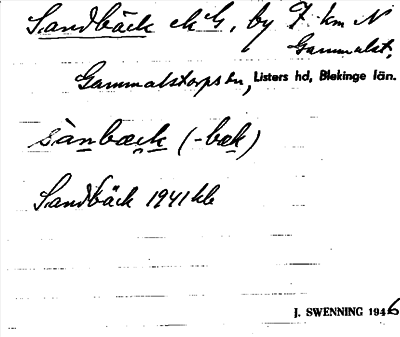 Sandbäck ek G, by 7 km N
Gammalst.
Gammalstorps sn, Listers hd, Blekinge län.
sànbæck (-bæk)
Sandbäck 1941 kb
J. SWENNING 1946